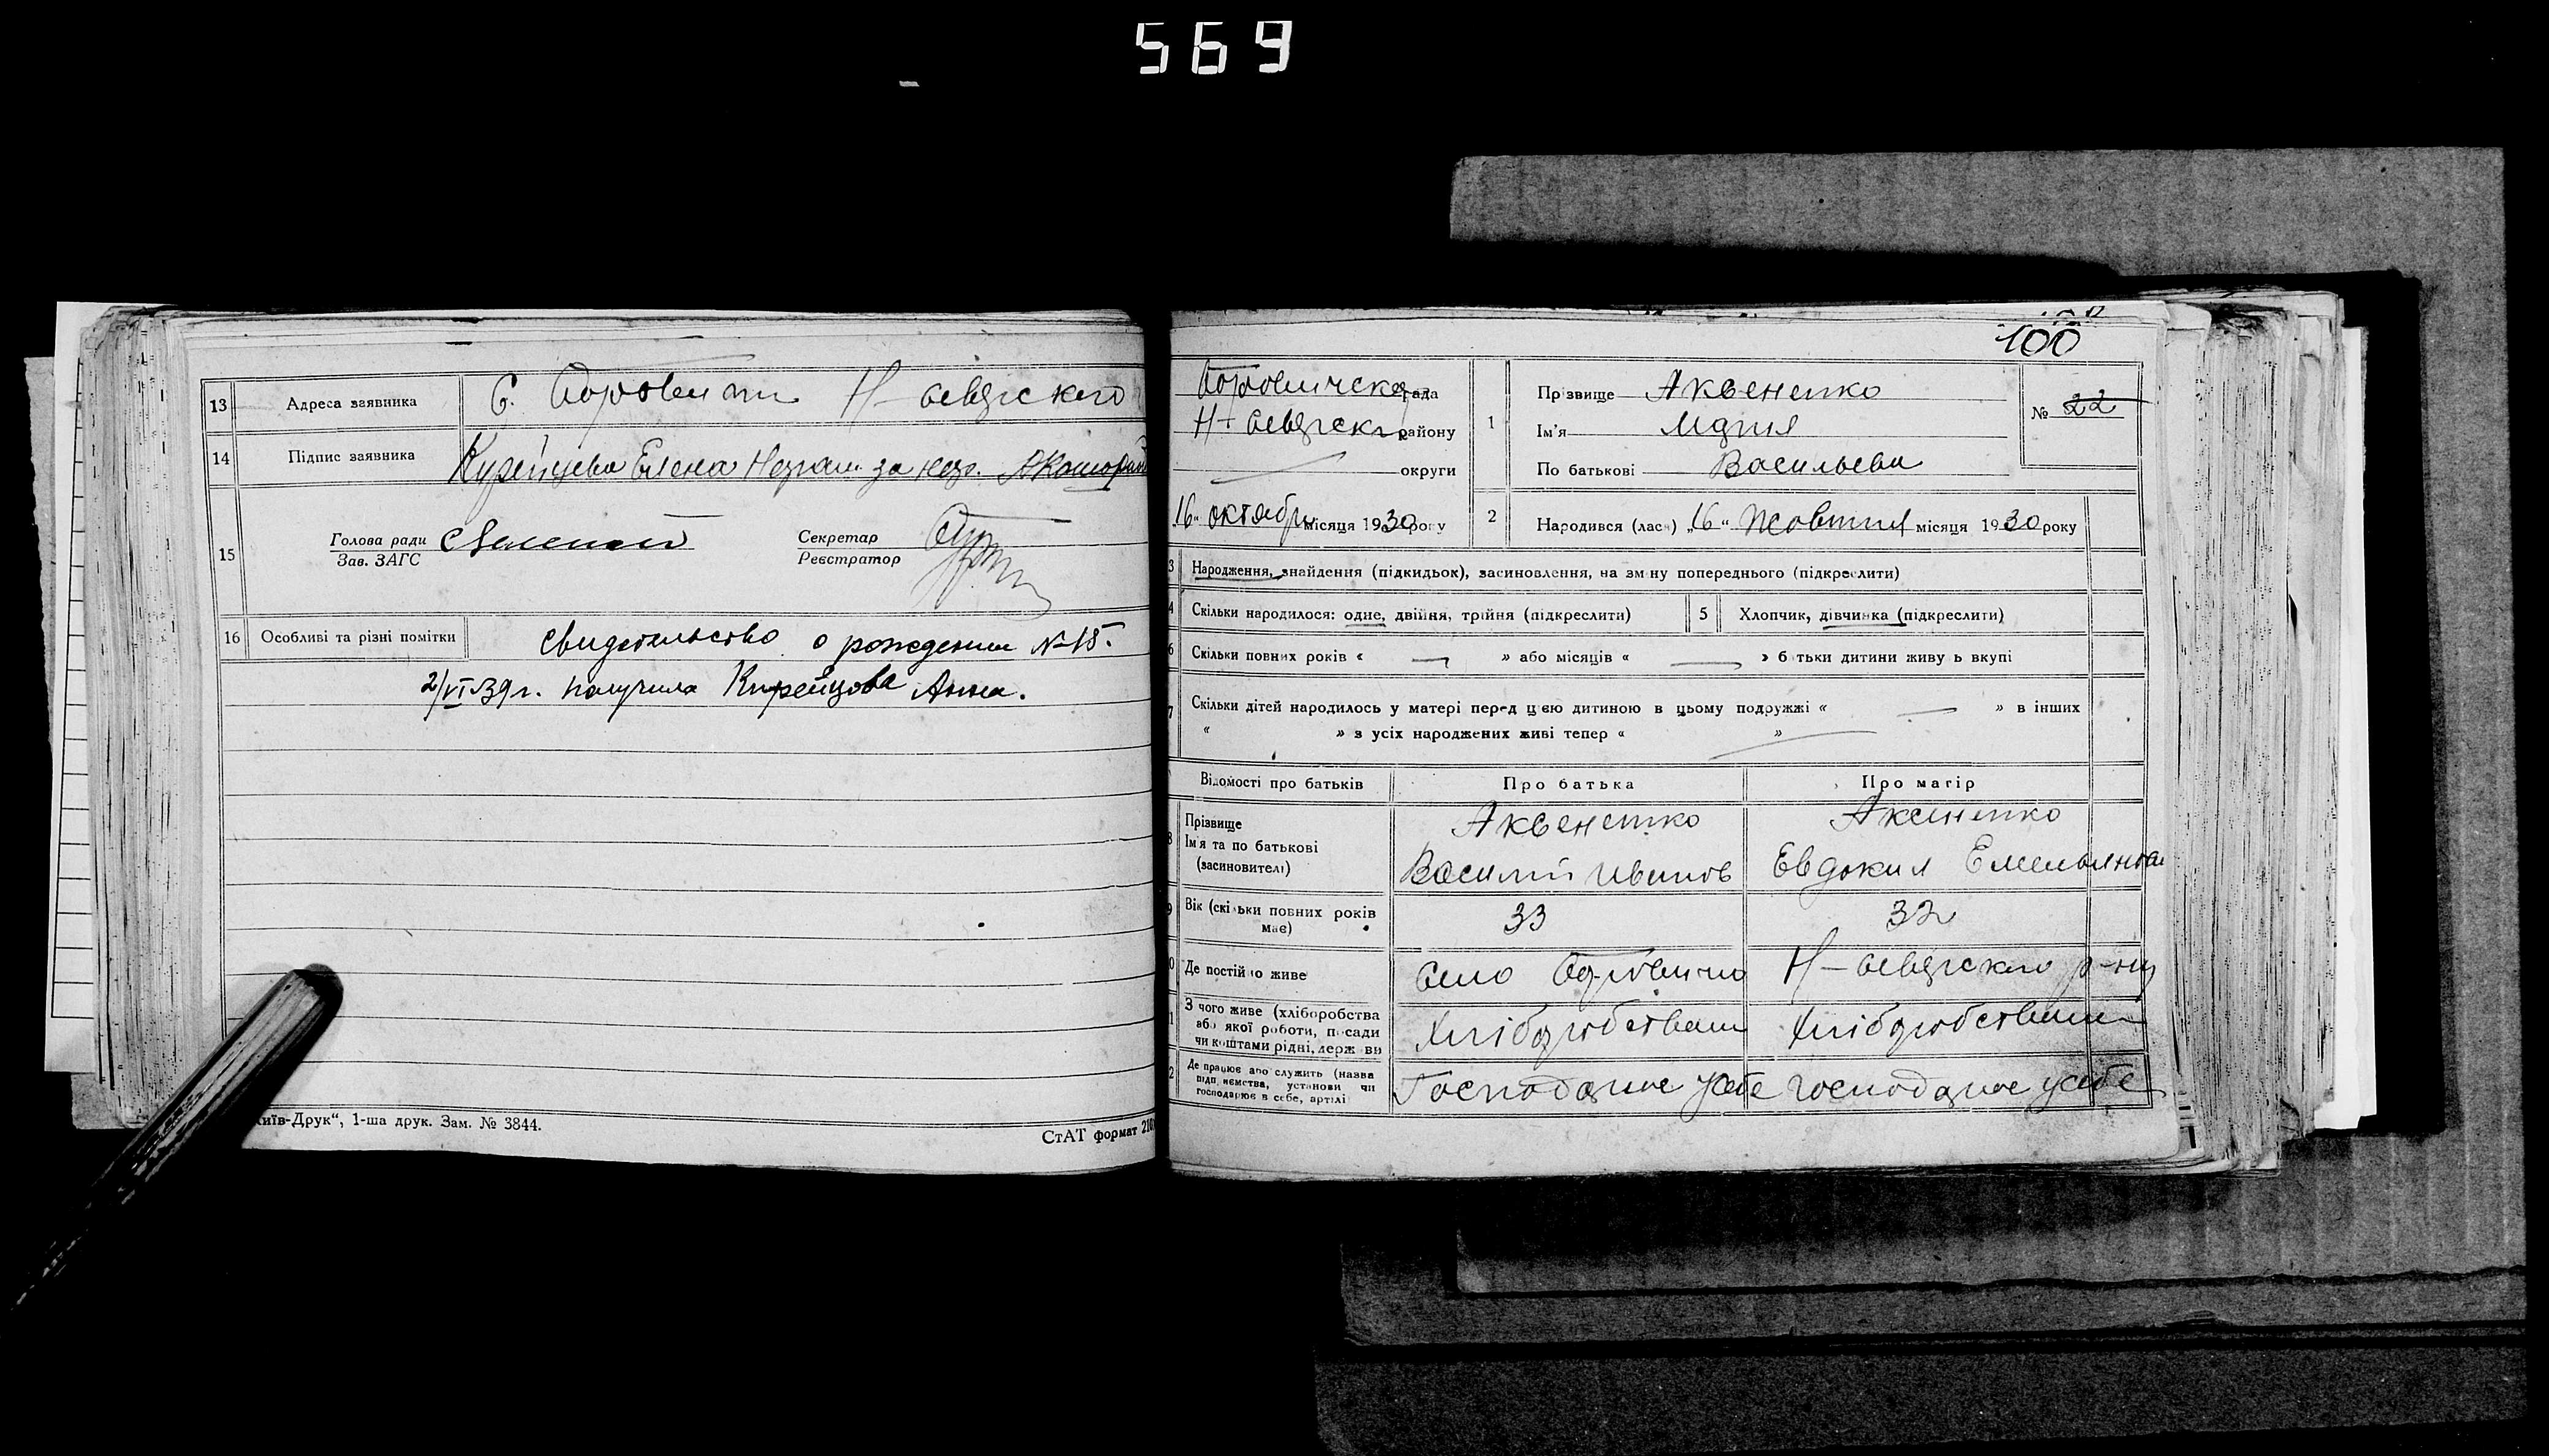 569
13 Адреса заявника С. Н-
14 Підпис заявника Елена за
15 Голова ради
Зав. ЗАГС
Секретар
Реєстратор
16 Особливі та різні помітки свидетельство о рождении №15.
2/VI 39 г. получила Кирейцова Анна.
"Київ-Друк", 1-ша друк. Зам. № 3844.
СтАТ формат 210
100
рада
Н- району
округи
"16" октябр місяця 1930 року
1 Прізвище Аксененко
Ім'я Мария
По батькові Васильевн
№ 22
2 Народився (лась) „16" Жовтня місяця 1930 року
3 Народження, знайдення (підкидьок), засиновлення, на зміну попереднього (підкреслити)
4 Скільки народилося: одне, двійня, трійня (підкреслити) 5 Хлопчик, дівчинка (підкреслити)
6 Скільки повних років « — » або місяців « — » батьки дитини живуть вкупі
7 Скільки дітей народилось у матері перед цією дитиною в цьому подружжі « — » в інших
« » з усіх народжених живі тепер « — »
Відомості про батьків Про батька Про матір
8 Прізвище Аксененко Аксененко
Ім'я та по батькові
(засновителі) Василий Иванов Евдокия Емельянова
9 Вік (скільки повних років має) 33 32
10 Де постійно живе Село Н- р-ну
11 З чого живе (хліборобства
або якої роботи, посади
чи коштами рідні, держави Хліборобством Хліборобством
12 Де працює або служить (назва
підприємства, установи чи
господарює в себе, артілі Господарює усебе господарює усебе